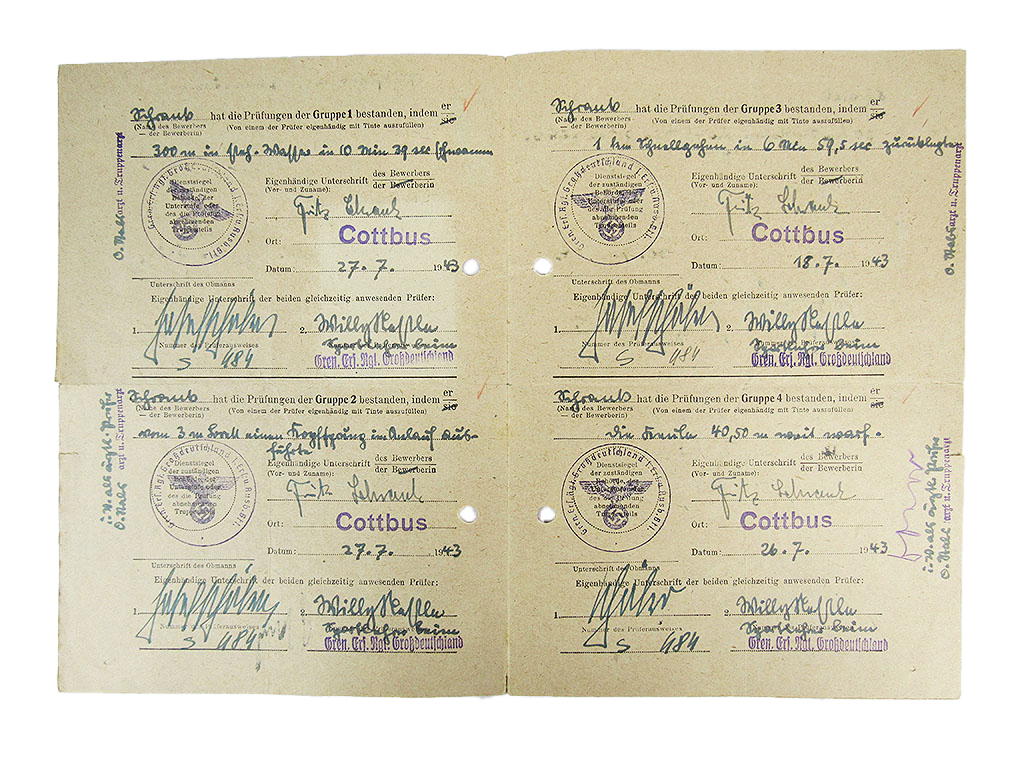 Schrank hat die Prüfungen der Gruppe 1 bestanden, indem er sie
(Name des Bewerbers (Von einem der Prüfer eigenhändig mit Tinte auszufüllen)
— der Bewerberin)
300 m in steh. Wasser in 10 Min 39 sec schwamm
Dienstsiegel
der zuständigen
Behörde, der
Unterstufe oder
des die Prüfung
abnehmenden
Truppenteils
Eigenhändige Unterschrift des Bewerbers
(Vor- und Zuname): der Bewerberin
Fritz Schrank
Ort: Cottbus
Datum: 27. 7. 1943
Unterschrift des Obmanns
Eigenhändige Unterschrift der beiden gleichzeitig anwesenden Prüfer:
1. 2. Willy
Nummer des Prüferausweises Sportlehrer beim
S 484 Gren. Ers. Rgt. Großdeutschland
O. Stabsarzt u. Truppenarzt
Schrank hat die Prüfungen der Gruppe 2 bestanden, indem er sie
(Name des Bewerbers (Von einem der Prüfer eigenhändig mit Tinte auszufüllen)
— der Bewerberin)
vom 3 m Brett einen Kopfsprung im Anlauf aus-
führte
Dienstsiegel
der zuständigen
Behörde, der
Unterstufe oder
des die Prüfung
abnehmenden
Truppenteils
Eigenhändige Unterschrift des Bewerbers
(Vor- und Zuname): der Bewerberin
Fritz Schrank
Ort: Cottbus
Datum: 27. 7. 1943
Unterschrift des Obmanns
Eigenhändige Unterschrift der beiden gleichzeitig anwesenden Prüfer:
1. 2. Willy
Nummer des Prüferausweises Sportlehrer beim
S 484 Gren. Ers. Rgt. Großdeutschland
O. Stabsarzt u. Truppenarzt
Schrank hat die Prüfungen der Gruppe 3 bestanden, indem er sie
(Name des Bewerbers (Von einem der Prüfer eigenhändig mit Tinte auszufüllen)
— der Bewerberin)
1 km Schnellgehen in 6 Min 59,5 sec zurücklegte
Dienstsiegel
der zuständigen
Behörde, der
Unterstufe oder
des die Prüfung
abnehmenden
Truppenteils
Eigenhändige Unterschrift des Bewerbers
(Vor- und Zuname): der Bewerberin
Fritz Schrank
Ort: Cottbus
Datum: 18. 7. 1943
Unterschrift des Obmanns
Eigenhändige Unterschrift der beiden gleichzeitig anwesenden Prüfer:
1. 2. Willy
Nummer des Prüferausweises Sportlehrer beim
S 484 Gren. Ers. Rgt. Großdeutschland
O. Stabsarzt u. Truppenarzt
Schrank hat die Prüfungen der Gruppe 4 bestanden, indem er sie
(Name des Bewerbers (Von einem der Prüfer eigenhändig mit Tinte auszufüllen)
— der Bewerberin)
die Keule 40,50 m weit warf.
Dienstsiegel
der zuständigen
Behörde, der
Unterstufe oder
des die Prüfung
abnehmenden
Truppenteils
Eigenhändige Unterschrift des Bewerbers
(Vor- und Zuname): der Bewerberin
Fritz Schrank
Ort: Cottbus
Datum: 26. 7. 1943
Unterschrift des Obmanns
Eigenhändige Unterschrift der beiden gleichzeitig anwesenden Prüfer:
1. 2. Willy
Nummer des Prüferausweises Sportlehrer beim
S 484 Gren. Ers. Rgt. Großdeutschland
O. Stabsarzt u. Truppenarzt